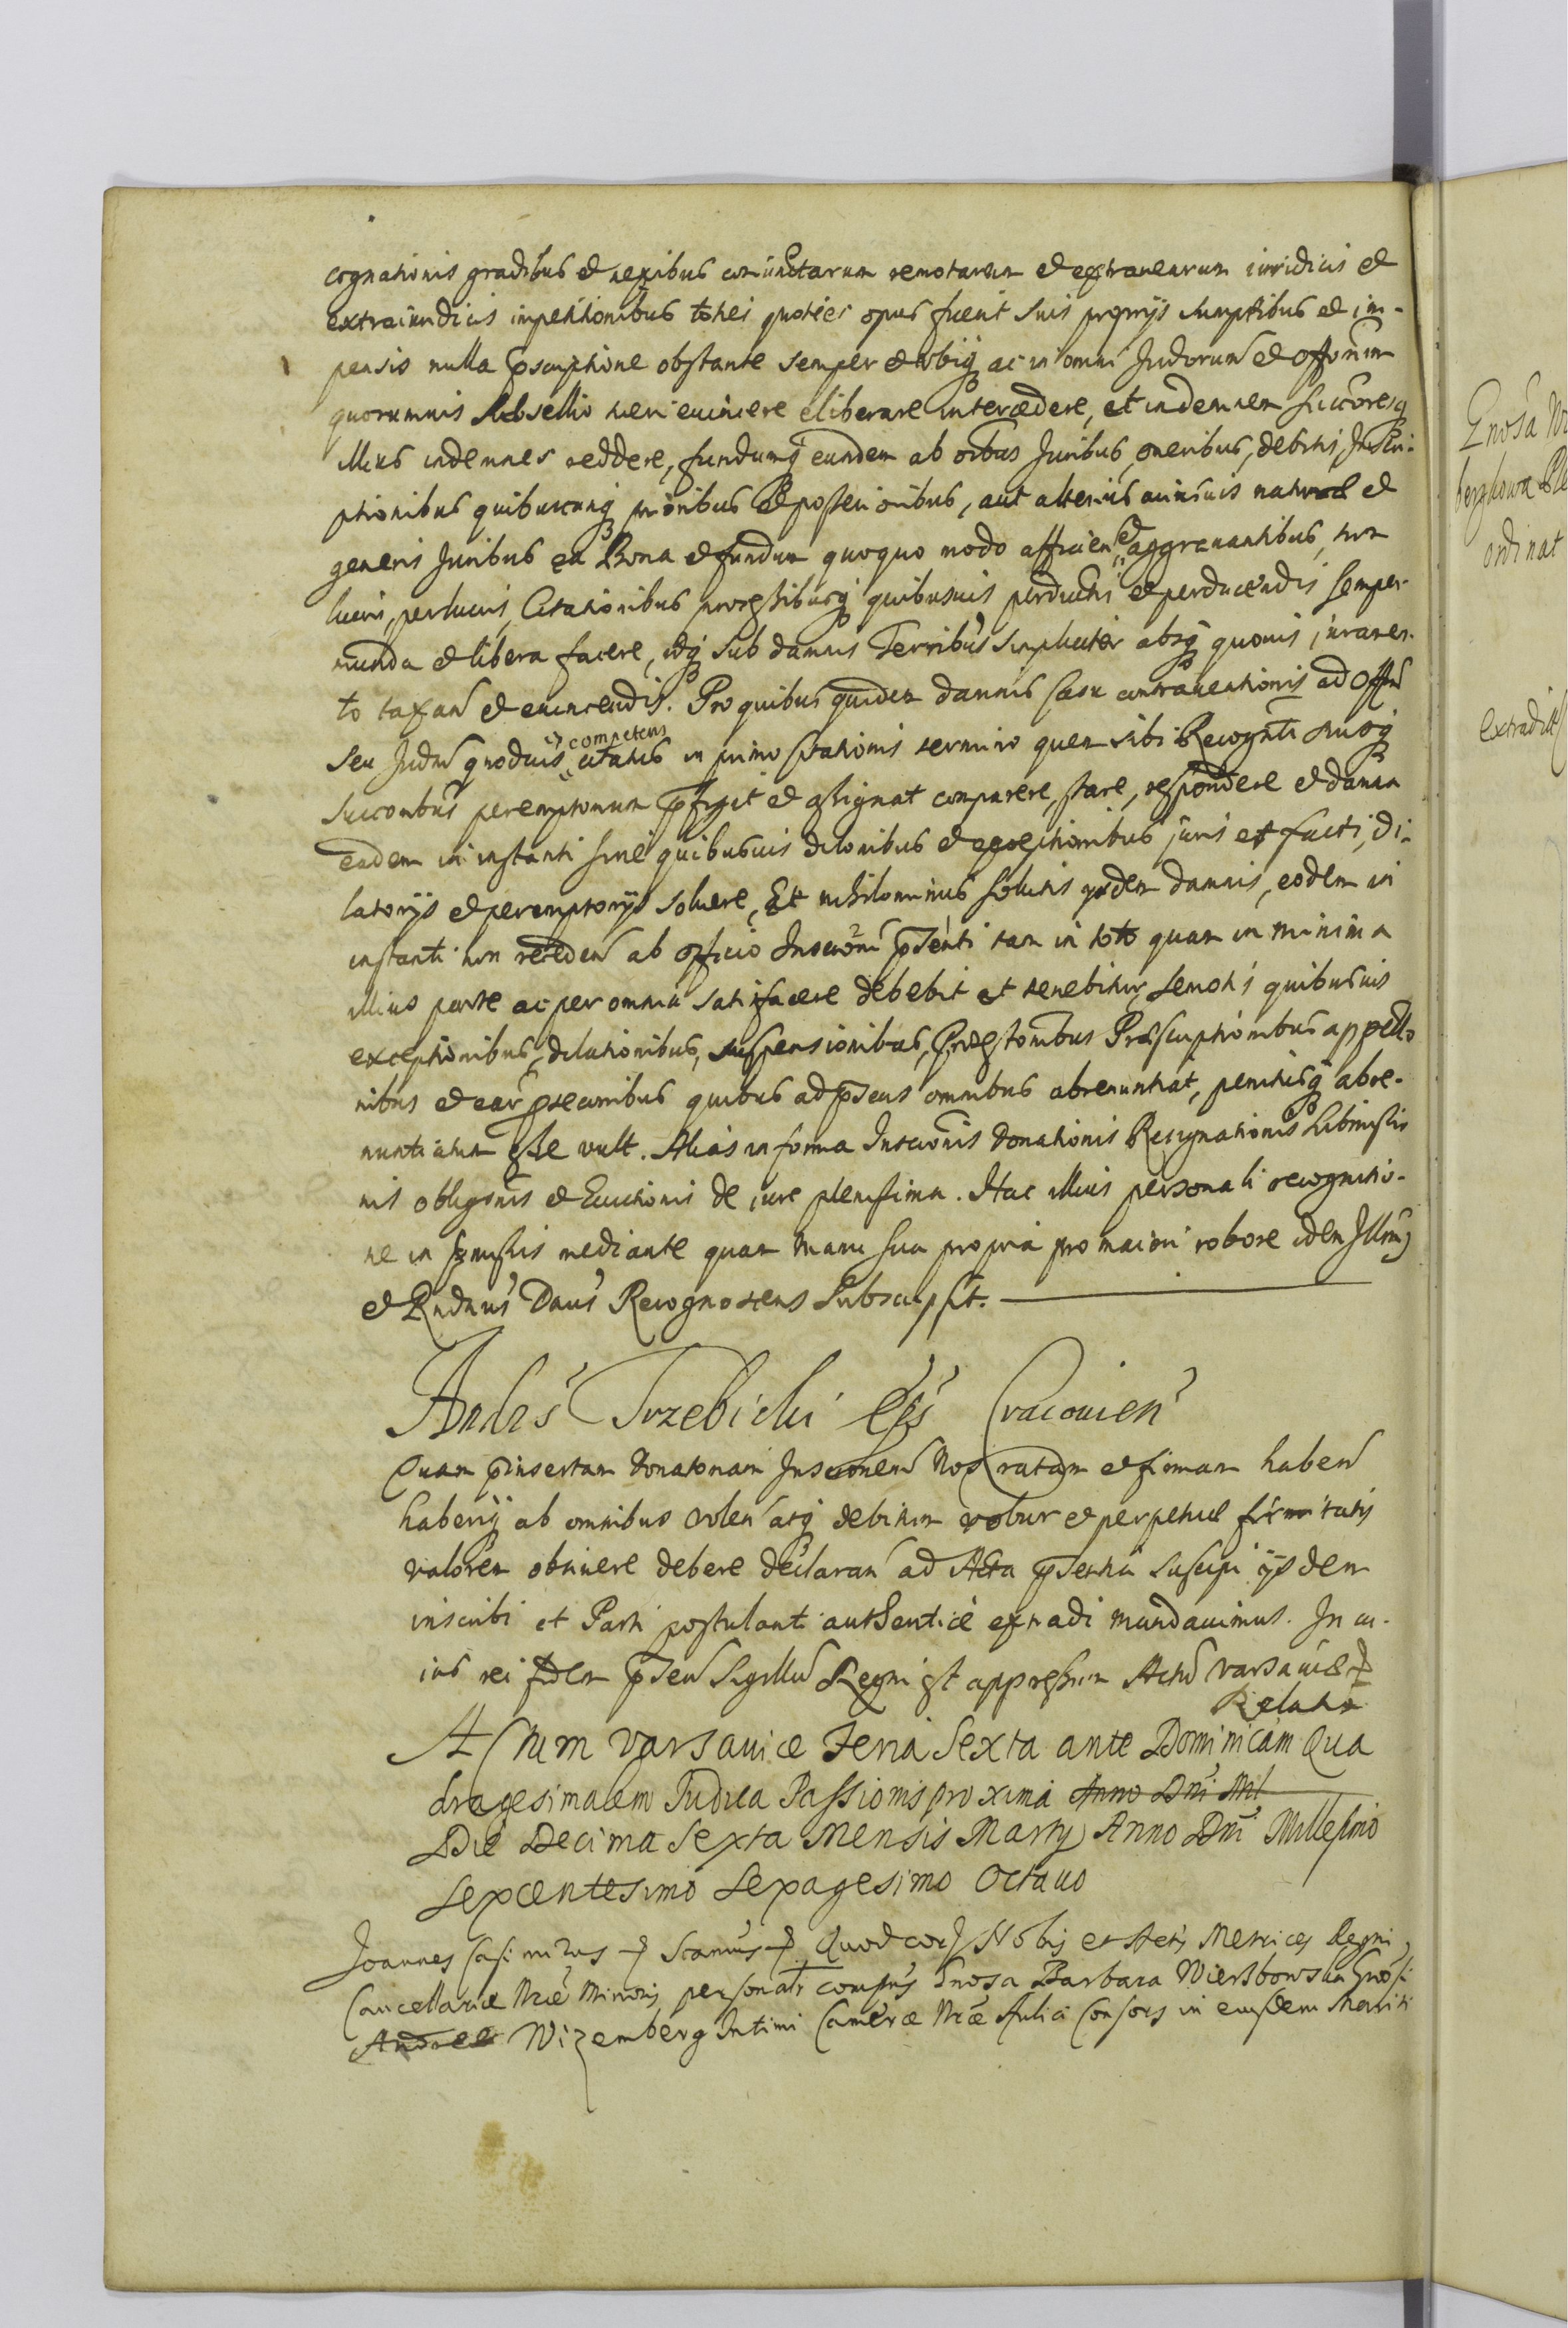 cognationis gradibus et nexibus coniunctarum remotarum et extranearum iuridicis et
extraiuridicis impetitionibus toties quoties opus fuerit suis proprijs sumptibus et im-
pensis nulla p̄scriptione obstante semper et ubiq ac in omni Judiorum et Officiorum
quorumvis Subsellio tueri evincere eliberare intercedere, et indemnem succoresq
illius indemnes reddere, fundumq eundem ab oībus Juribus, oneribus, debitis, Inscri-
ptionibus quibuscunq prioribus et posterioribus, aut alterius cuiusvis naturæ et
generis Juribus ea Bona et fundum quoquo modo afficien̄ et aggravantibus, tum
lucris, perlucris, Citationibus processibusq quibusvis perductis et perducendis semper
munda et libera facere, idq sub damnis Terribus simpliciter absq quovis iuramen-
to taxan̄ et evincendis. Pro quibus quidem damnis casu contraventionis ad Offm̄
seu Judm̄ quodvis competens citatus in primo citationis termino quem sibi Recognti suisq
Succoribus peremptorium p̄figit et assignat comparere, stare, respondere et damna
eadem in instanti sine quibusvis dilonibus et exceptionibus juris et facti, di-
latorijs et peremptorijs solvere, Et nihilominus solutis ijsdem damnis, eodem in
instanti non receden̄ ab officio Inscrioni p̄senti tam in toto quam in minima
illius parte ac per omnia satisfacere debebit et tenebitur, semotis quibusvis
exceptionibus, dilationibus, suspensionibus, Præscriptionibus appello
nibus et ear̄ p̄secunibus quibus ad p̄sens omnibus abrenuntiat, penitusq abre-
nuntiatum esse vult. Alias in forma Inscrionis donationis Resignationis Intromissio
nis obligonis et Evictionis de iure plenissima. Hac illius personali recognitio-
ne in præmissis mediante quam manu sua propria pro maiori robore idem Illmus
et Rndmus Dnus Recognoscens Subscripsit.
Andrs Trzebicki Eps Cracovien̄
Quam p̄insertam donatoriam Inscrionem Nos ratam et firmam haben̄
haberiq ab omnibus volen̄ atq debitum robur et perpetuæ firmitatis
valorem obtinere debere declaran̄ ad Acta p̄sentia suscipi ijsdem
inscribi et Parti postulanti authentice extradi mandavimus. In cu-
ius rei fidem p̄sen̄ Sigillū Regni est appressum Actū Varsaviæ
Relatio
Actum Varsaviæ Feria Sexta ante Dominicam Qua
dragesimalem Judica Passionis proxima Anno Dni Mil
Die Decima Sexta Mensis Martij Anno Dni Millesimo
Sexcentesimo Sexagesimo Octavo
Joannes Casimirus Scamus Quod cor Nobis et Actis Metrices Regni
Cancellariæ Nræ Minoris personalr compns Gnosa Barbara Wierzbowska Gnosi
Andreæ Wizemberg Intimi Cameræ Nræ Aulici Consors in eiusdem Mariti
Gnosa
ordinat